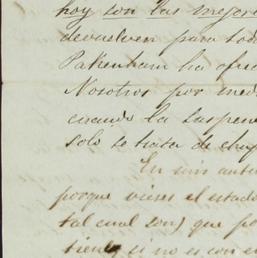 hoy son las mejores
devuelven para tod
Pakenham ha ofrec
Nosotros por med
cuando la suspen
solo se trata de
En mis ante
porque vieses el estado
tal cual son) que po
tiene si no es con e